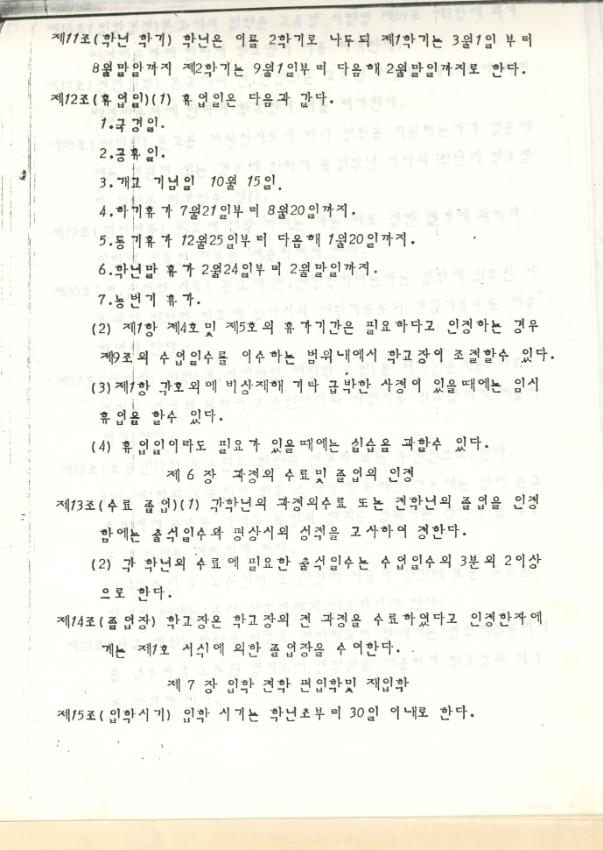 제11조(학년 학기) 학년은 이를 2학기로 나누되 제1학기는 3월1일 부터
8월말일까지 제2학기는 9월1일부터, 다음해 2월말일까지로 한다.
제12조(휴업일)(1) 휴업일은 다음과 같다.
1.국경일.
2.공휴일.
3.개교 기념일 10월 15일.
4.하기휴가 7월21일부터 8월20일까지.
5.동기휴가 12월25일부터 다음해 1월20일까지.
6.학년말 휴가 2월24일부터 2월말일까지.
7.농번기 휴가.
(2) 제1항 제4호및 제5호의 휴가기간은 필요하다고 인정하는 경우
제9조의 수업일수를 이수하는 범위내에서 학교장이 조절할수 있다.
(3)제1항 각호외에 비상재해 기타 급박한 사정이 있을때에는 임시
휴업을 할수 있다.
(4) 휴업일이라도 필요가 있을때에는 실습을 과할수 있다.
제 6 장 과정의 수료및 졸업의 인정
제13조(수료 졸업)(1) 각학년의 과정의수료 또는 전학년의 졸업을 인정
함에는 출석일수와 평상시의 성적을 고사하여 정한다.
(2) 각 학년의 수료에 필요한 출석일수는 수업일수의 3분의 2이상
으로 한다.
제14조(졸업장) 학교장은 학교장의 전 과정을 수료하였다고 인정한자에
게는 제1호 서식에 의한 졸업장을 수여한다.
제 7 장 입학 전학 편입학및 재입학
제15조(입학시기) 입학 시기는 학년초부터 30일 이내로 한다.